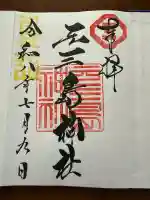 奉拝
三島神社
令和八年七月九日